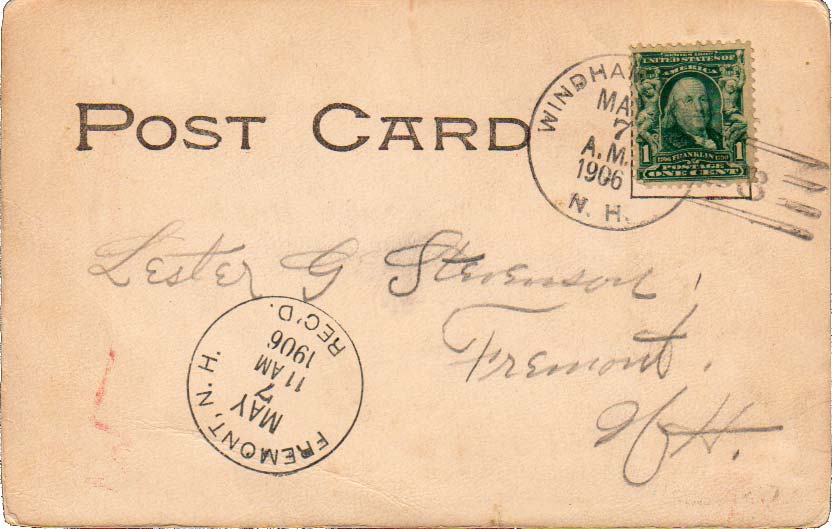 POST CARD
WINDHAM
MAY
7
A.M.
1906
N. H.
SERIES 1902
UNITED STATES OF
AMERICA
1706 FRANKLIN 1790
POSTAGE
1 1
ONE CENT
Lester G Stevenson,
Fremont.
N H.
FREMONT, N. H.
MAY
7
11 AM
1906
REC'D.